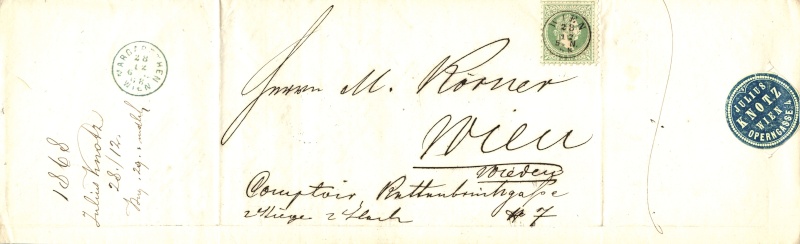 MARGARETHEN
WIEN
1868
Julius Knotz
28/12.
WIEN
28
12
Herrn M. Körner
Wien
Wieden
Comptoir,
2 Stiege 2 Stock № 7
JULIUS
KNOTZ
WIEN
OPERNGASSE